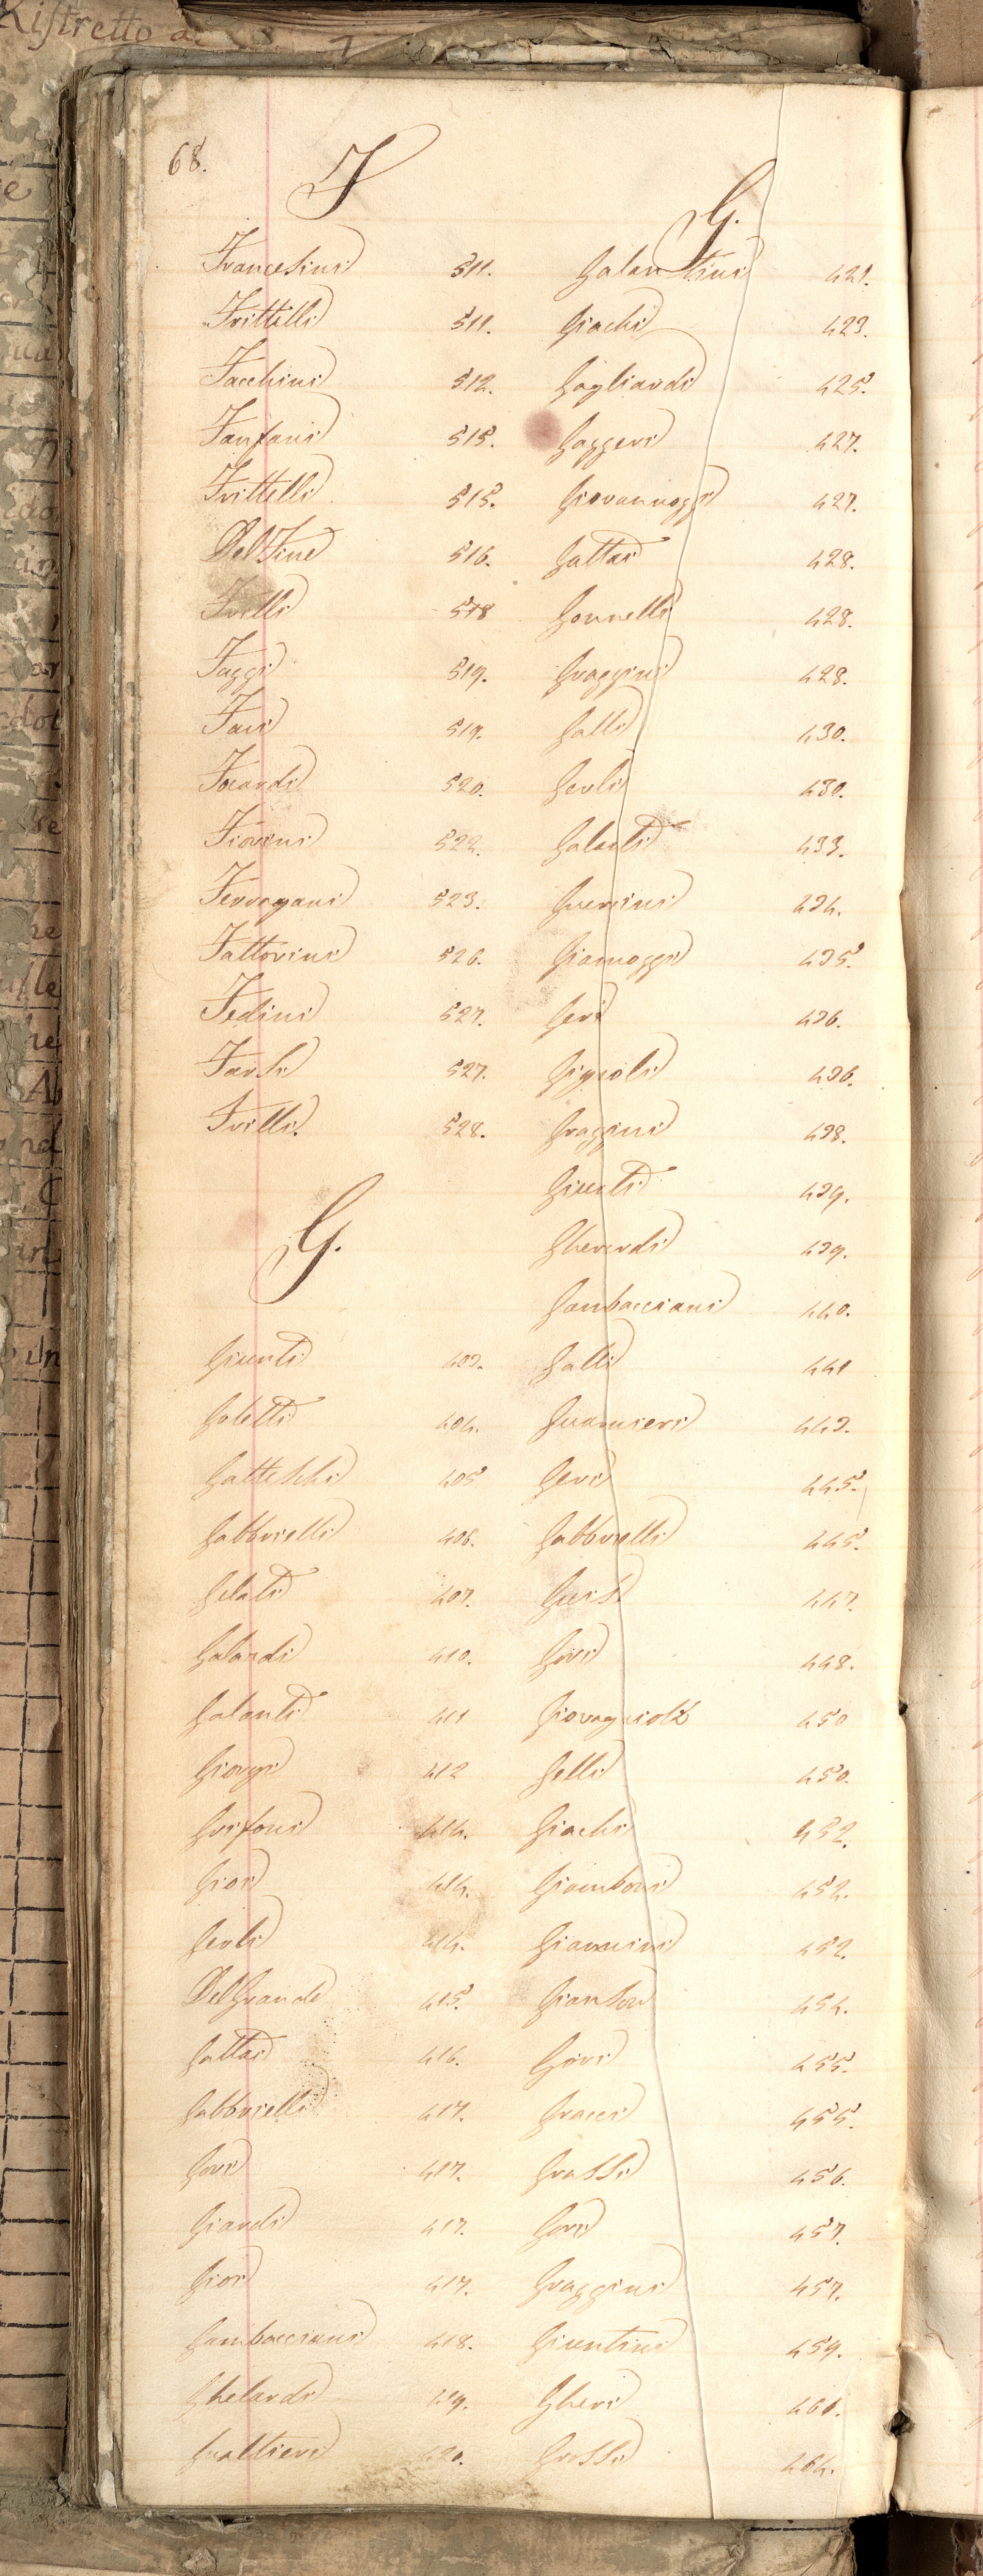 68.
F
Francesini 511.
Frittelli 511.
Facchini 512.
Fanfani 515.
Frittelli 515.
Del Fine 516.
Frilli 518
Faggi 519.
Faci 519.
Focardi 520.
Fiorini 522.
Ferragani 523.
Fattorini 526.
Fedini 527.
Farsi 527.
Frilli. 528.
G.
Giunti 403.
Goletti 404.
Gatteschi 405
Gabbrielli 406.
Gelati 407.
Galardi 410.
Galanti 411
Giorgi 412
Grifoni 414.
Giori 414.
Gerli 414.
Del Grande 415.
Gattai 416.
Gabbrielli 417.
Gori 417.
Giardi 417.
Giori 417.
Gambacciani 418.
Ghelardi 419.
Gualtieri 420.
G.
Galantini 421.
Giachi 423.
Gagliardi 425.
Gaggeri 427.
Giovannozzi 427.
Gattai 428.
Gonnelli 428.
Graggini 428.
Galli 430.
Gerli 430.
Galanti 433.
Guerrini 434.
Giannozzi 435.
Geri 436.
Gignoli 436.
Graggini 438.
Giunti 439.
Gherardi 439.
Gambacciani 440.
Galli 441
Guarnieri 443.
Geri 445.
Gabbrielli 445.
447.
Gori 448.
Giovagnioli 450
Gelli 450.
Giachi 452.
Giamboni 452.
Giannini 452.
454.
Gori 455.
Gracci 455.
Grassi 456.
Gori 457.
Graggini 457.
Giuntini 459.
Gheri 460.
Grossi 464.
Ristretto